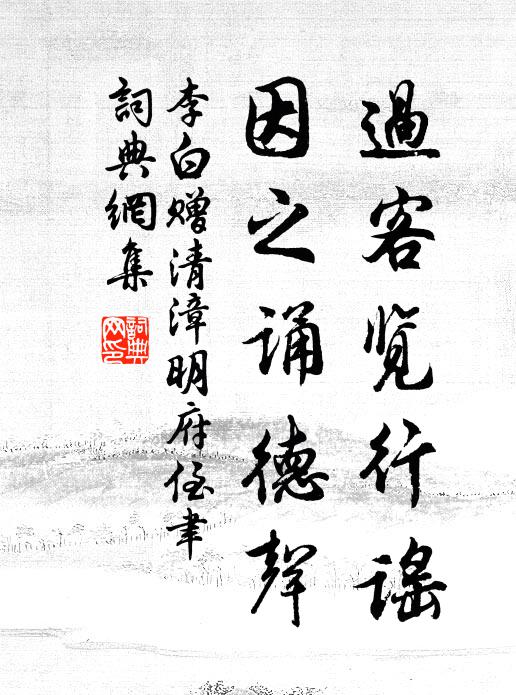 過客覽行謠
因之誦德聲
李白贈清漳明府侄聿
詞典網集
詞典網印